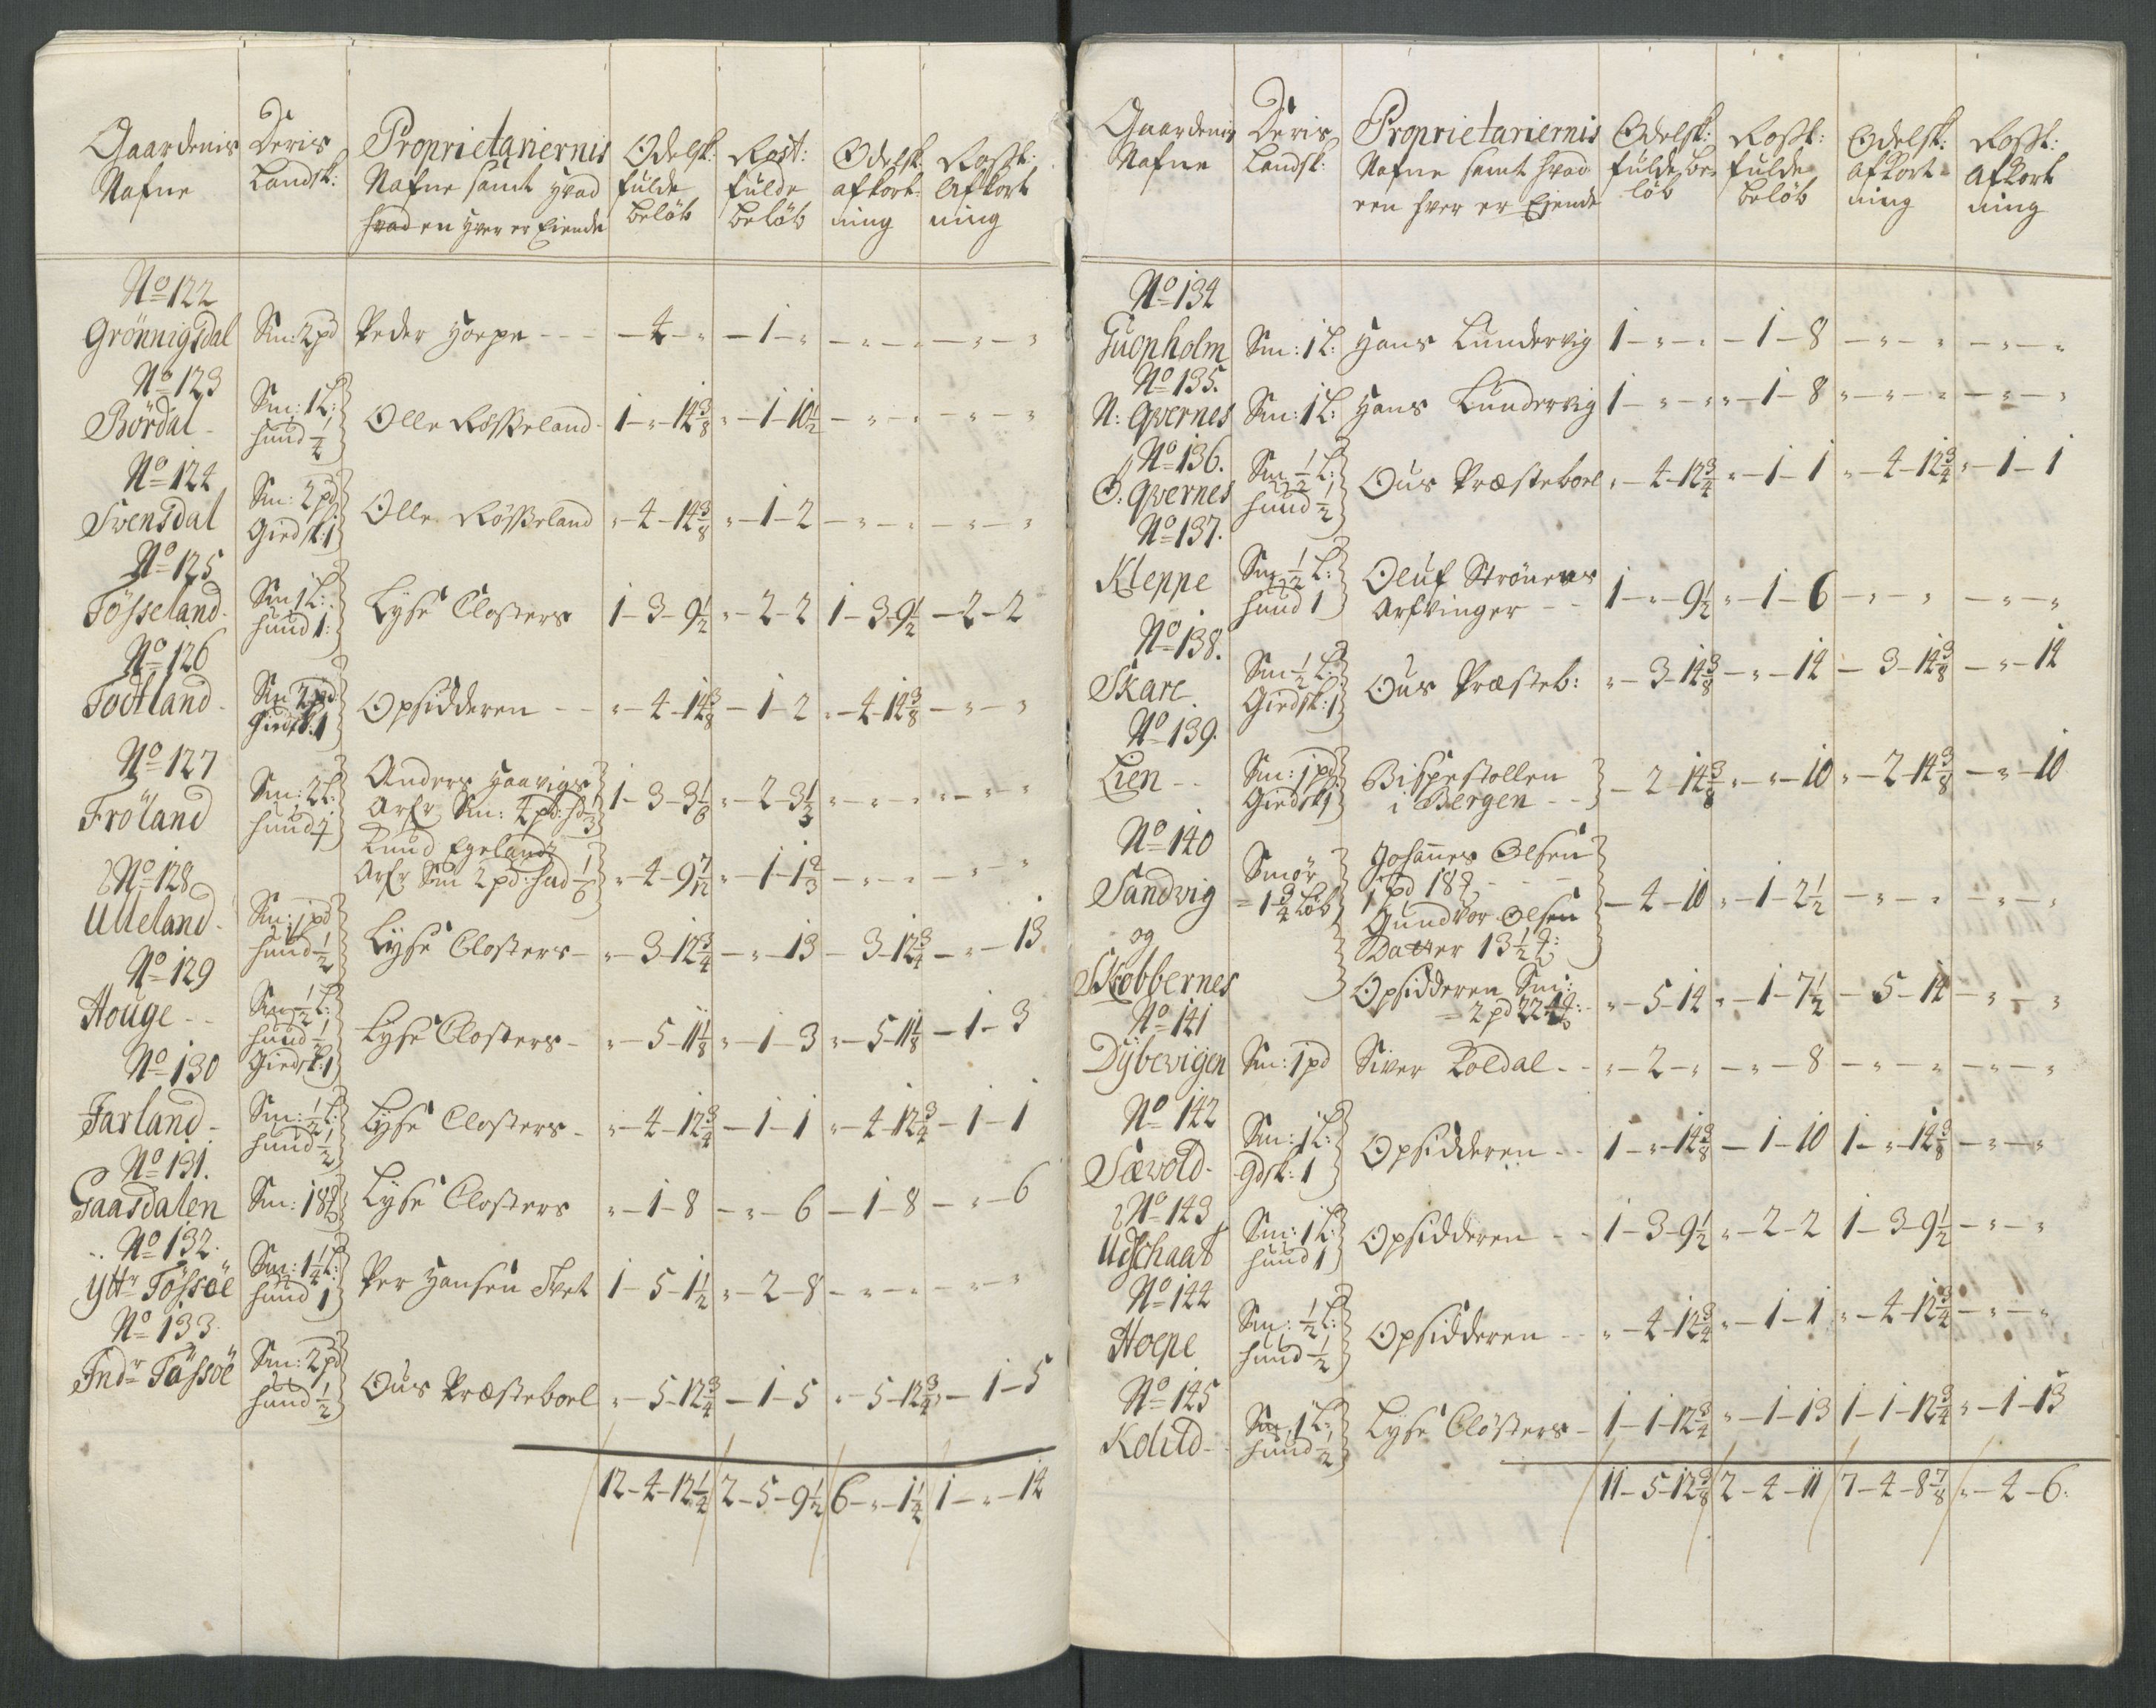 Gaardenis Nafne | Deris Landsk: | Proprietariernis Nafne samt hvad hvad en hver er Eiende | Odelsk: fulde beløb | Rost: fulde beløb | Odelsk: afkortning | Rostk: Afkortning
No 122
Grönnigsdal | Sm: 2 pd | Peder Hoepe - - - | - 4 - " | - 1 - " | - " - " | - " - "
No 123
Bördal - | Sm: 1 L: hund 1/4 | Olle Rösseland - | 1 - " - 14 3/8 | " - 1 - 10 1/2 | - " - " | - " - "
No 124
Svensdal | Sm: 2 pd Giedsk: 1 | Olle Rösseland | " - 4 - 14 3/8 | " - 1 - 2 | - " - " | - " - "
No 125
Tösseland - | Sm 1 L: hund 1: | Lyse Closters | 1 - 3 - 9 1/2 | " - 2 - 2 | 1 - 3 - 9 1/2 | - 2 - 2
No 126
Todtland - | Sm 2 pd: Giedsk: 1 | Opsidderen - - | " - 4 - 14 3/8 | - 1 - 2 | " - 4 - 14 3/8 | - " - "
No 127
Fröland | Sm: 2 L: hund 1/2 | Anders Haavigs
Arfr Sm: 4 pd: hd 1/3 | 1 - 3 - 3 1/6 | " - 2 - 3 1/3 | " - " - " | " - " - "
Knud Egelands
Arfr Sm 2 pd: hud 1/6 | " - 4 - 9 7/12 | " - 1 - 1 2/3 | - " - " | " - "
No 128
Ulleland - | Sm: 1 pd hund 1/2 | Lyse Closters - | " - 3 - 12 3/4 | - " - 13 | - 3 - 12 3/4 | - " - 13
No 129
Houge - - | Sm 1/2 L: hund 1/2 Giedsk: 1 | Lyse Closters - | " - 5 - 11 1/8 | " - 1 - 3 | " - 5 - 11 1/8 | - 1 - 3
No 130
Farland - | Sm: 1/2 L: hund 1/2 | Lyse Closters - | " - 4 - 12 3/4 | - 1 - 1 | " - 4 - 12 3/4 | - 1 - 1
No 131.
Gaasdalen | Sm: 18 | Lyse Closters | " - 1 - 8 | - " - 6 | - 1 - 8 | - " - 6
No 132.
Yttr Tössöe | Sm: 1 1/4 L: hund 1 | Per Hansen Tvet | 1 - 5 - 1 1/2 | " - 2 - 8 | - " - " | - " - "
No 133
Indr Tössöe | Sm: 2 pd hund 1/2 | Ous Præsteboel | " - 5 - 12 3/4 | - 1 - 5 | " - 5 - 12 3/4 | " - 1 - 5
12 - 4 - 12 1/4 | 2 - 5 - 9 1/2 | 6 - " - 1 1/4 | 1 - " - 14
Gaardenis Nafne | Deris Landsk: | Proprietariernis Nafne samt hvad een hver er Ejende | Odelsk: fulde beløb | Rostk: fulde beløb | Odelsk: afkortning | Rostk: Afkortning
No 134
Tuepholm | Sm: 1 L: | Hans Lundervig | 1 - " - " | - 1 - 8 | - " - " | - " - "
No 135.
N: Qvernes | Sm: 1 L: | Hans Lundervig | 1 - " - " | " - 1 - 8 | " - " - " | - " - "
No 136.
Ö: Qvernes | Sm 1/2 L: hund 1/2 | Ous Præsteboel | " - 4 - 12 3/4 | " - 1 - 1 | " - 4 - 12 3/4 | " - 1 - 1
No 137.
Kleppe | Sm 1/2 L: hund 1 | Oluf Strönens
Arfvinger - - | 1 - " - 9 1/2 | " - 1 - 6 | - " - " | - " - "
No 138.
Skare | Sm 1/2 L: Giedsk: 1 | Ous Præsteb: | " - 3 - 14 3/8 | - " - 14 | - 3 - 14 3/8 | - " - 14
No 139.
Lien - - | Sm: 1 pd: Giedsk 1 | Bispestollen
i Bergen - - | - 2 - 14 3/8 | " - " - 10 | " - 2 - 14 3/8 | - " - 10
No 140
Sandvig | Smör 1 3/4 Løb | Johannes Olsen
1 pd 18 - - -
Gundvor Olsen
Datter 13 1/2 | - 4 - 10 | " - 1 - 2 1/2 | - " - " | - " - "
og
Skobbernes | Opsidderen Sm:
2 pd 22 1/2 | " - 5 - 14 | " - 1 - 7 1/2 | - 5 - 14 | - " - "
No 141
Dybevigen | Sm: 1 pd | Siver Koldal - - | " - 2 - " | - " - 8 | - " - " | - " - "
No 142
Sævold - | Sm: 1 L: Gdsk: 1 | Opsidderen - - | 1 - " - 14 3/8 | - 1 - 10 | 1 - " - 14 3/8 | - " - "
No 143
Udschaar | Sm: 1 L: hund 1 | Opsidderen - - | 1 - 3 - 9 1/2 | " - 2 - 2 | 1 - 3 - 9 1/2 | - " - "
No 144
Hoepe | Sm: 1/2 L: hund 1/2 | Opsidderen - - | " - 4 - 12 3/4 | " - 1 - 1 | " - 4 - 12 3/4 | - " - "
No 145
Kolld - | Sm 1 L: hund 1/2 | Lyse Clösters - | 1 - 1 - 12 3/4 | " - 1 - 13 | 1 - 1 - 12 3/4 | " - 1 - 13
11 - 5 - 12 3/8 | 2 - 4 - 11 | 7 - 4 - 8 7/8 | " - 4 - 6: